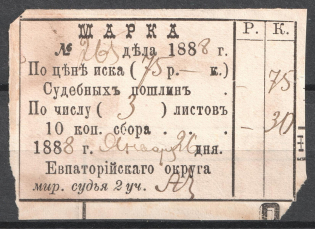 МАРКА Р. К.
№ 265 дѣла 1888 г.
По цѣнѣ иска ( 75 р. — к.)
Судебныхъ пошлин . . 75
По числу ( 3 ) листовъ
10 коп. сбора . . . — 30
1888 г. Января 26 дня.
Евпаторійскаго округа
мир. судья 2 уч.